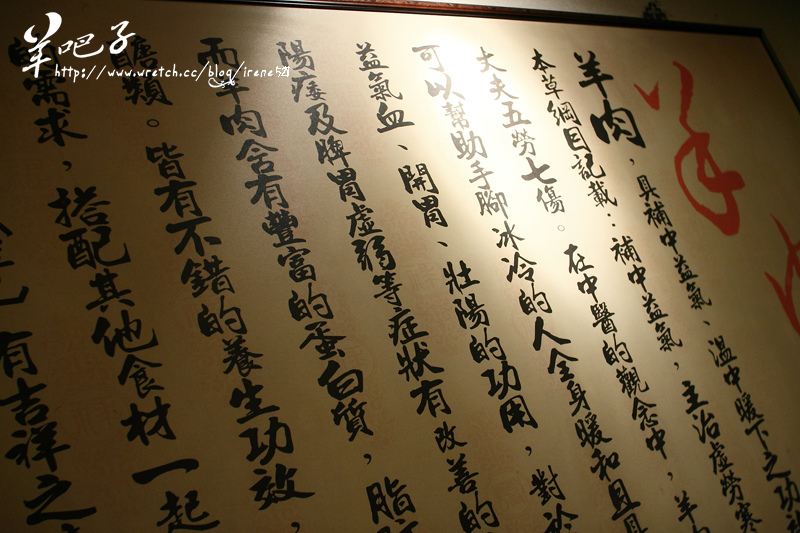 羊吧子
https://www.wretch.cc/blog/irene521
羊
羊肉，具補中益氣、溫中暖下之功
本草綱目記載：補中益氣，主治虛勞寒
丈夫五勞七傷。在中醫的觀念中，羊肉
可以幫助手腳冰冷的人全身暖和且具
益氣血、開胃、壯陽的功用，對於
陽痿及脾胃虛弱等症狀有改善的
而羊肉含有豐富的蛋白質，脂
醣類。皆有不錯的養生功效，
的需求，搭配其他食材一起
有吉祥之